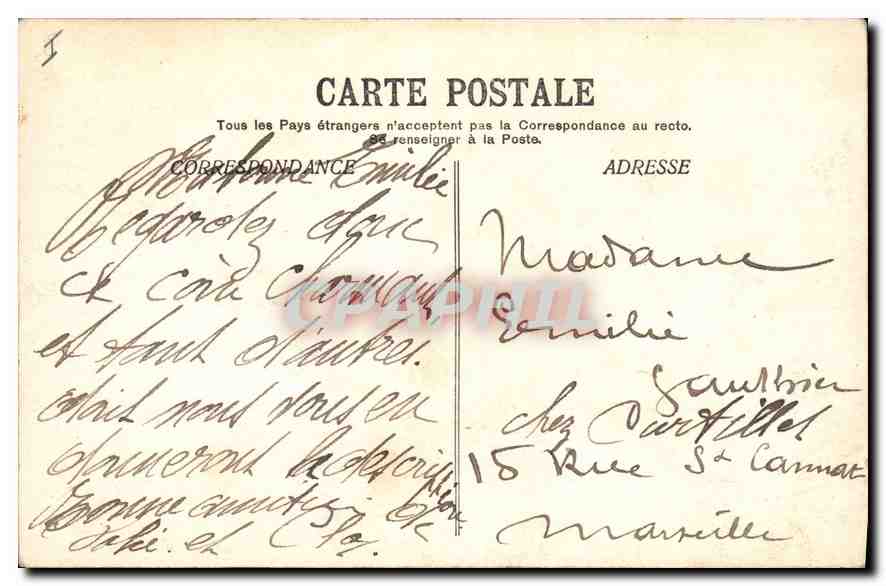 I
CARTE POSTALE
Tous les Pays étrangers n'acceptent pas la Correspondance au recto.
Se renseigner à la Poste.
CORRESPONDANCE
Ma bonne Emilie
regardez donc
ce coin charmant
et tant d'autres
dont nous vous en
donnerons la description
Bonne amitié
et
ADRESSE
Madame
Emilie
Gauthier
chez Curtillet
15 Rue St Cannat
Marseille
CPAPHIL